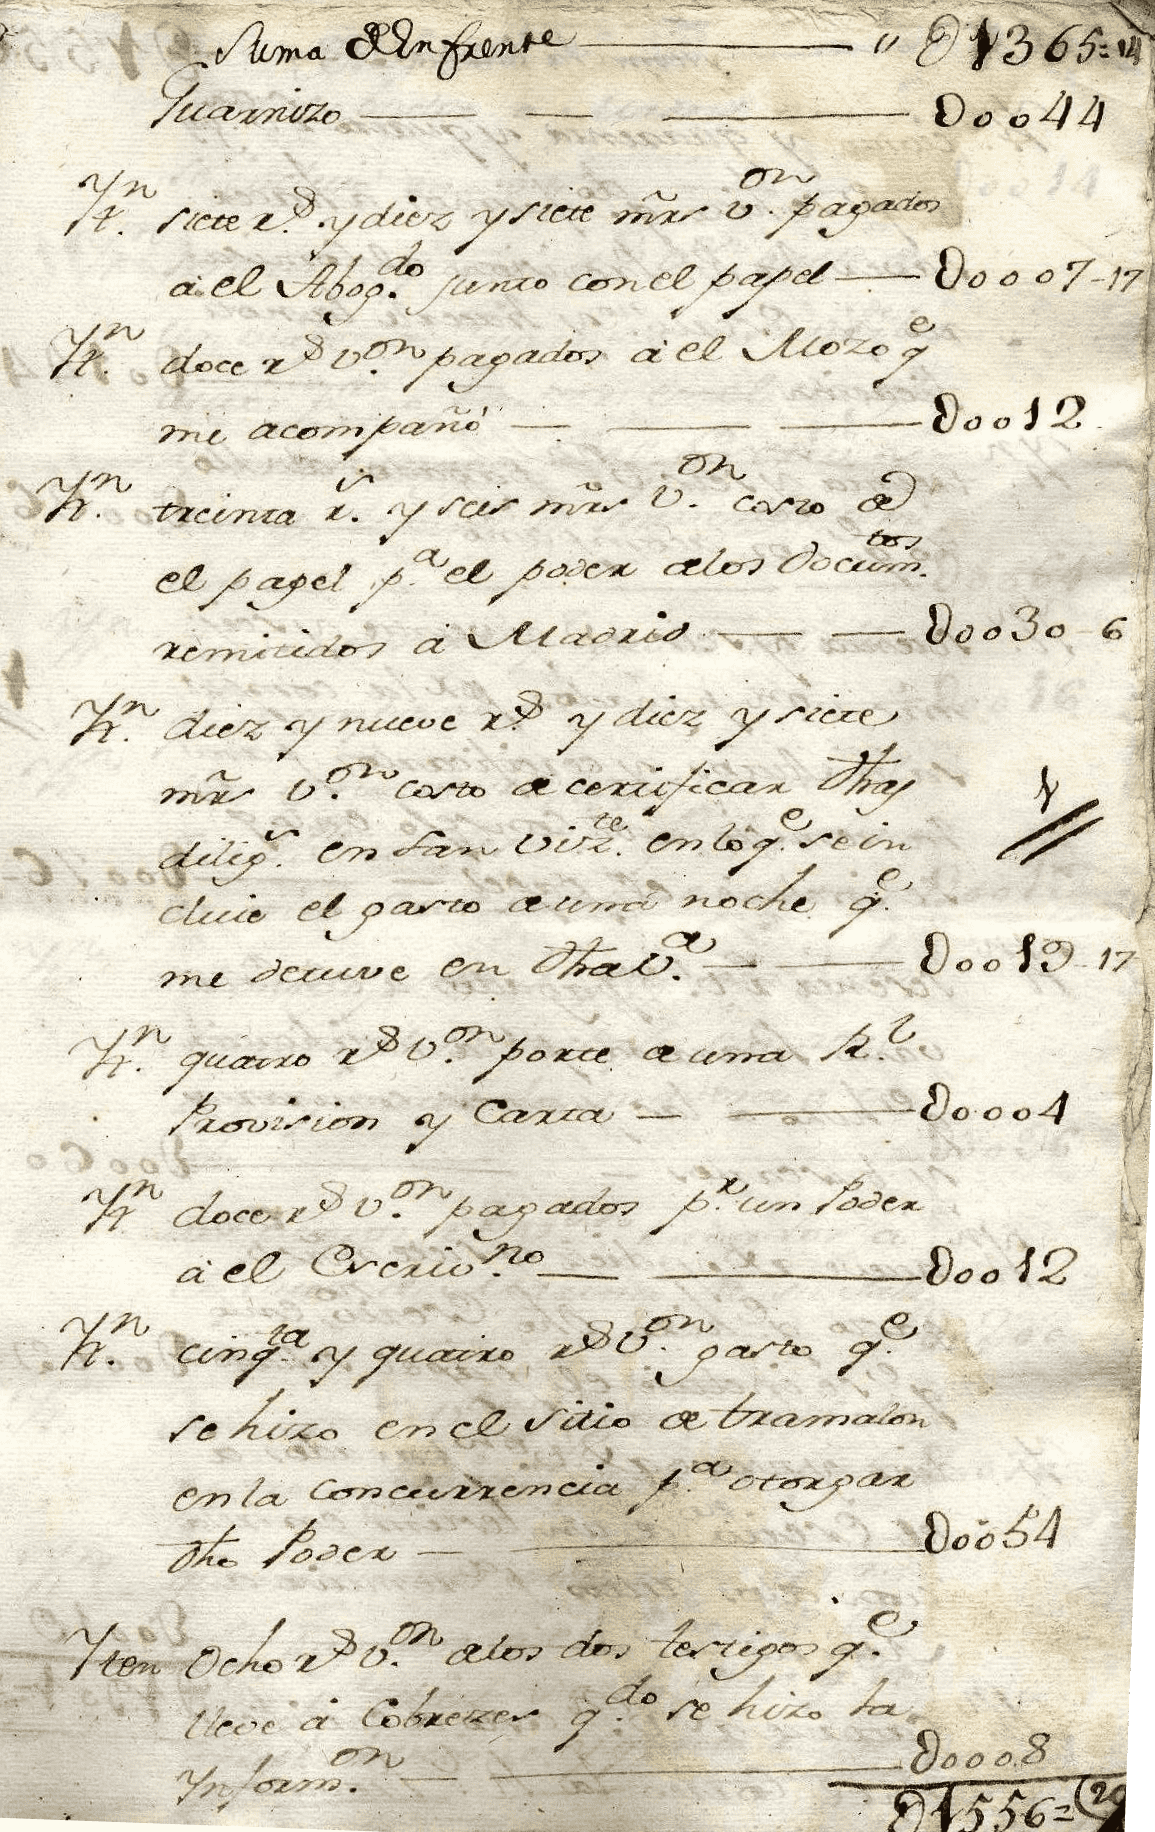 Suma de Enfrente — " D1365=14
Guarnizo — D0044
Yt.n siete r.s y diez y siete mrs v.on pagados
a el Abog.do junto con el papel — D0007-17
Yt.n doce r.s v.on pagados a el Mozo q.e
me acompañó — D0012
Yt.n treinta r.s y seis mrs v.on costo de
el papel p.a el poder de los Docum.tos
remitidos a Madrid — D0030-6
Yt.n diez y nueve r.s y diez y siete
mrs v.on costo de certificar dhas
dilig.s en San Viz.te en lo q.e se in
cluie el gasto de una noche q.e
me detuve en dha V.a — D0019-17
Yt.n quatro r.s v.on porte de una R.l
Provision y Carta — D0004
Yt.n doce r.s v.on pagados p.r un Poder
a el Escriv.no — D0012
Yt.n cinq.ta y quatro r.s v.on gasto q.e
se hizo en el sitio de tramalon
en la concurrencia p.a otorgar
dho Poder — D0054
Yten Ocho r.s v.on a los dos testigos q.e
lleve a Cobrezes q.do se hizo la
Inform.on — D0008
D1556=20